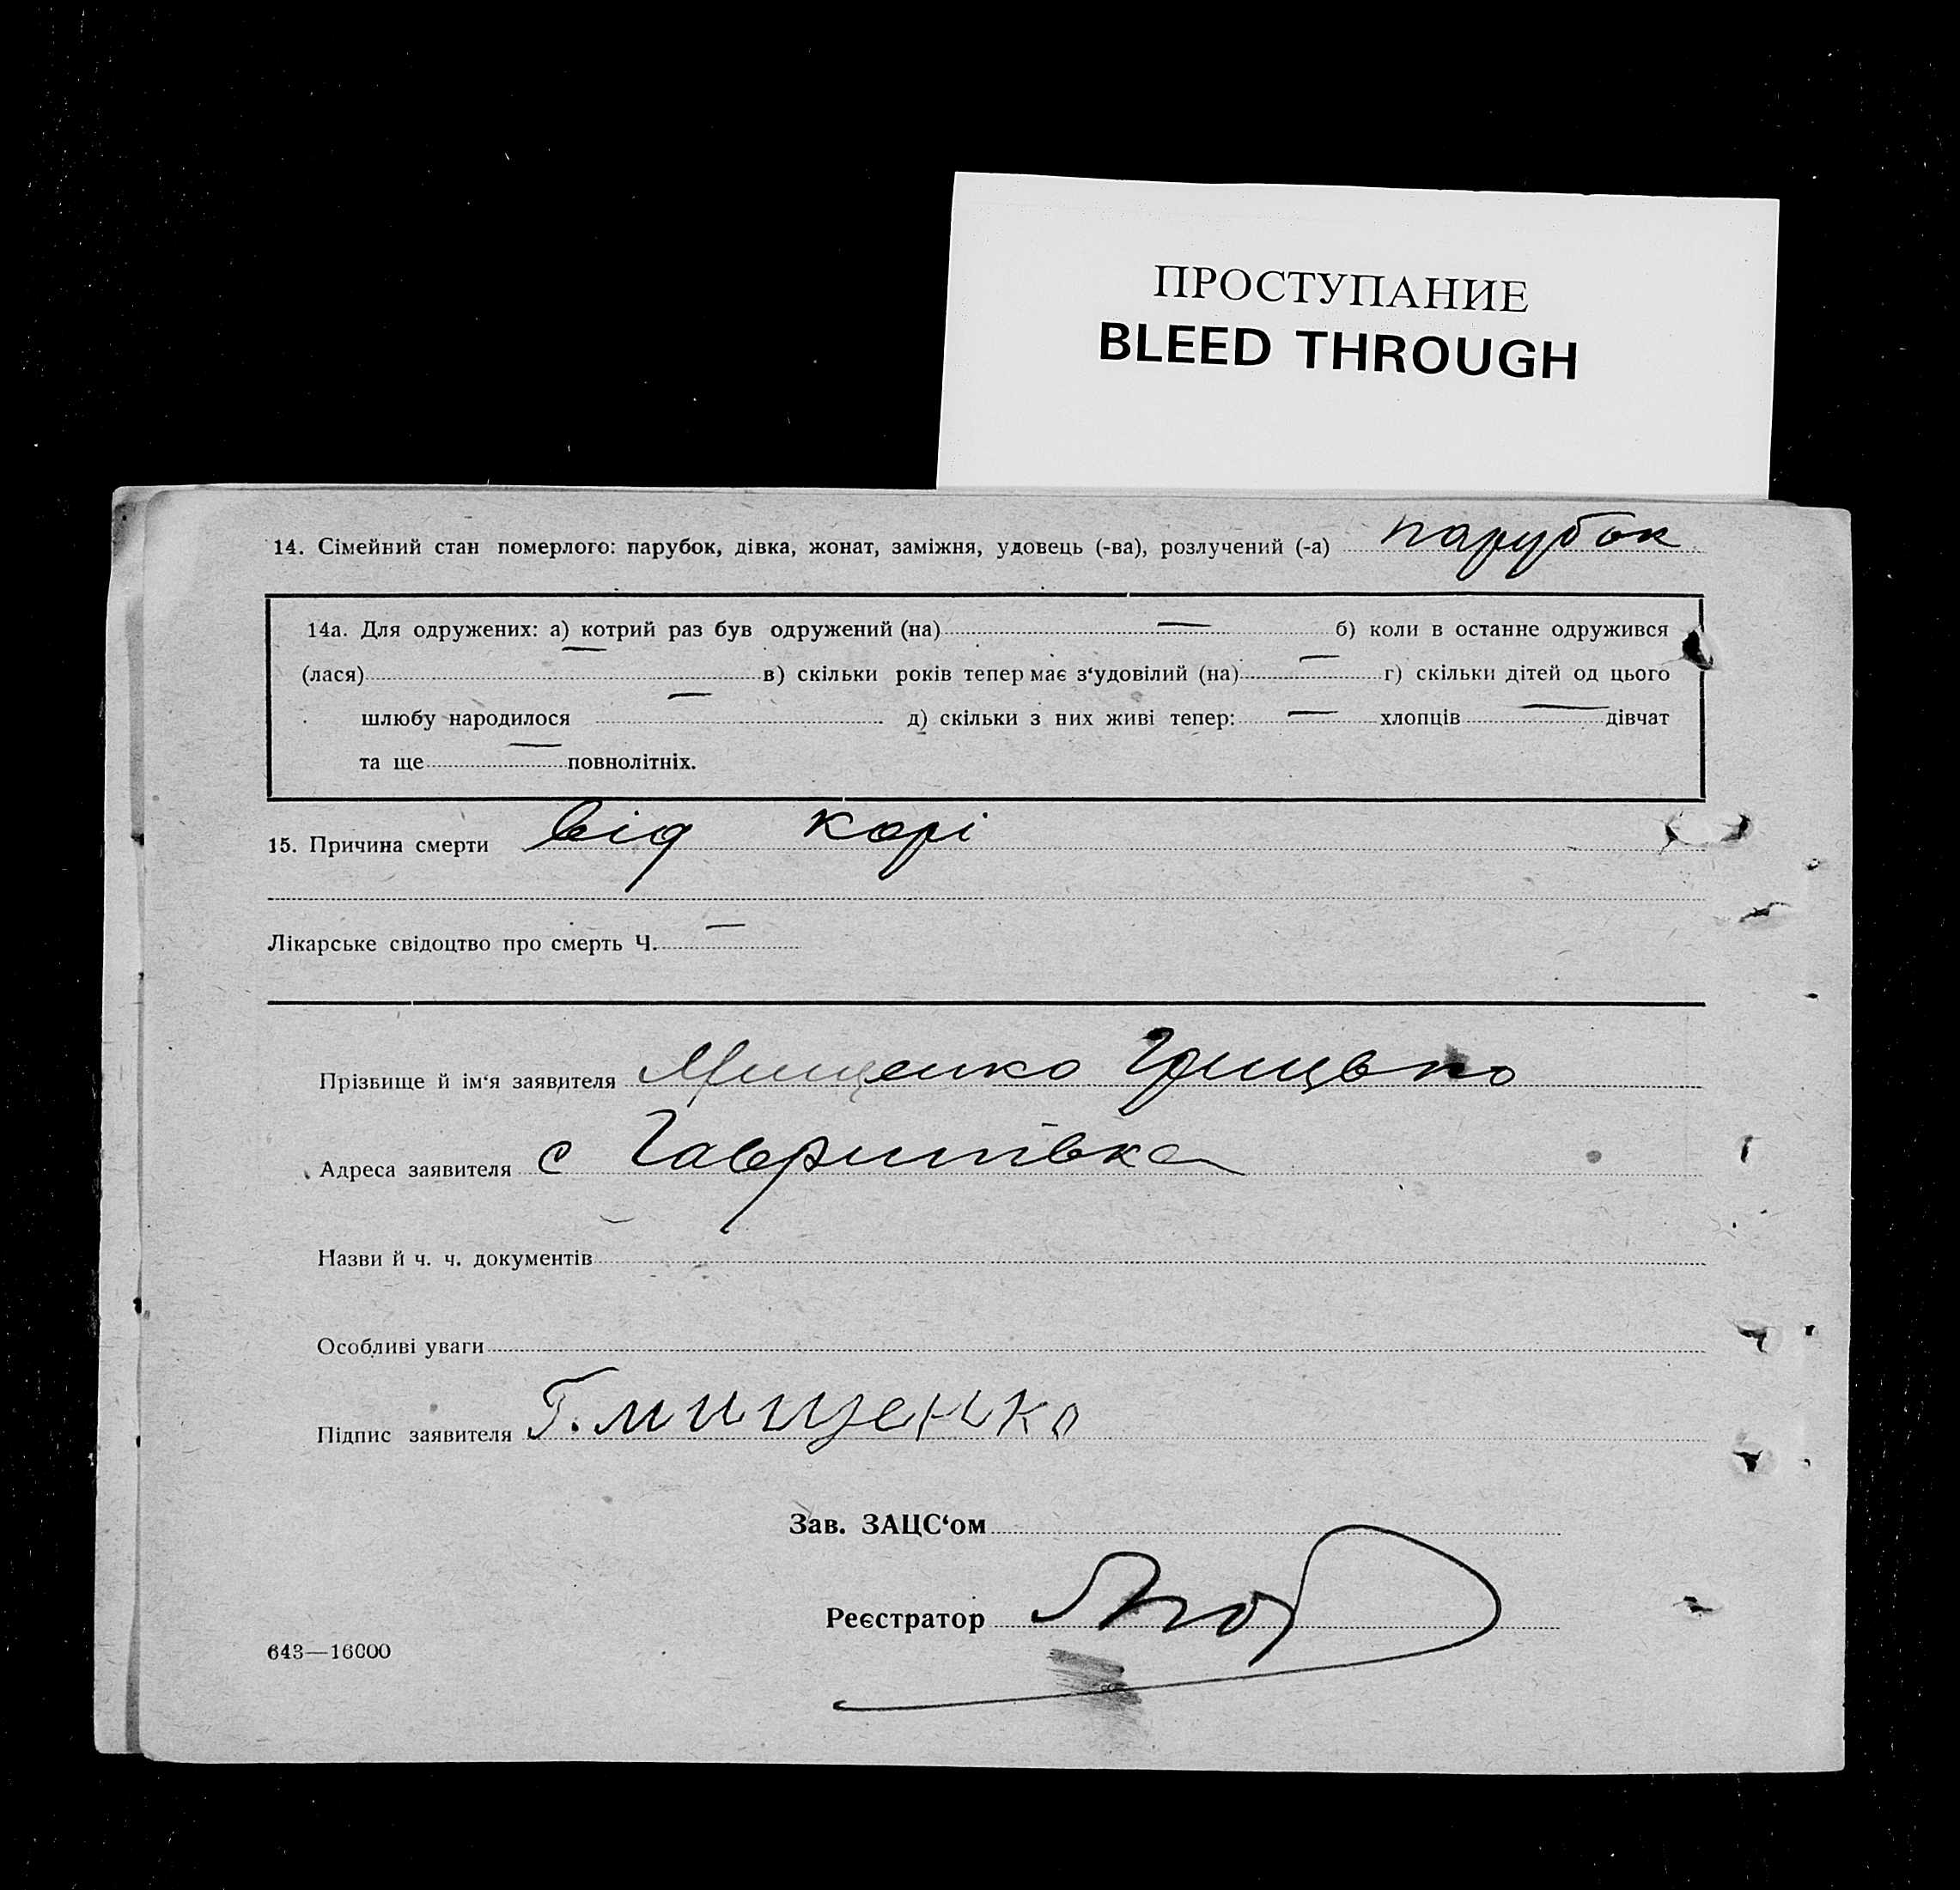 ПРОСТУПАНИЕ
BLEED THROUGH
14. Сімейний стан померлого: парубок, дівка, жонат, заміжня, удовець (-ва), розлучений (-а) парубок
14а. Для одружених: а) котрий раз був одружений (на) — б) коли в останнє одружився
(лася) — в) скільки років тепер має з‘удовілий (на) — г) скільки дітей од цього
шлюбу народилося — д) скільки з них живі тепер: — хлопців — дівчат
та ще — повнолітніх.
15. Причина смерти від корі
Лікарське свідоцтво про смерть Ч. —
Прізвище й ім‘я заявителя Мищенко Грицько
Адреса заявителя с
Назви й ч. ч. документів
Особливі уваги
Підпис заявителя Г. Мищенко
Зав. ЗАЦС‘ом
Реєстратор
643—16000